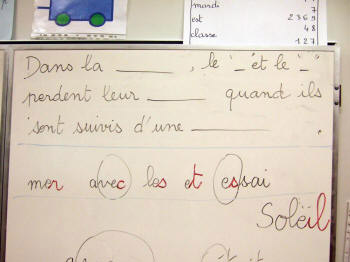 mardi
7
est 2369
48
classe 127
Dans la ______, le "_" et le "_"
perdent leur ______ quand ils
sont suivis d'une ______.
mer avec les et essai
Soleil